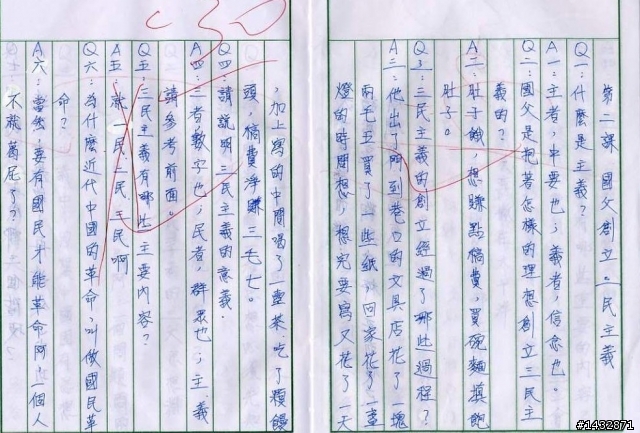 第二課 國父創立三民主義
Q一:什麼是主義?
A一:主者,主要也;義者,信念也。
Q二:國父是抱著怎樣的理想創立三民主
義的?
A二:肚子餓,想賺點稿費,買碗麵填飽
肚子。
Q三:三民主義的創立經過了哪些過程?
A三:他出了門到巷口的文具店花了一塊
兩毛五買了一些紙,回家花了一盞
燈的時間想,想完要寫又花了一天
,加上寫的中間喝了一壺茶吃了顆饅
頭,稿費淨賺三毛七。
Q四:請說明三民主義的意義。
A四:三者數字也;民者,群眾也;主義
請參考前面。
Q五:三民主義有哪些主要內容?
A五:就一民、二民、三民啊
Q六:為什麼近代中國的革命,叫做國民革
命?
A六:當然要有國民才能革命阿!一個人
不就葛屁了?
30
#1432871